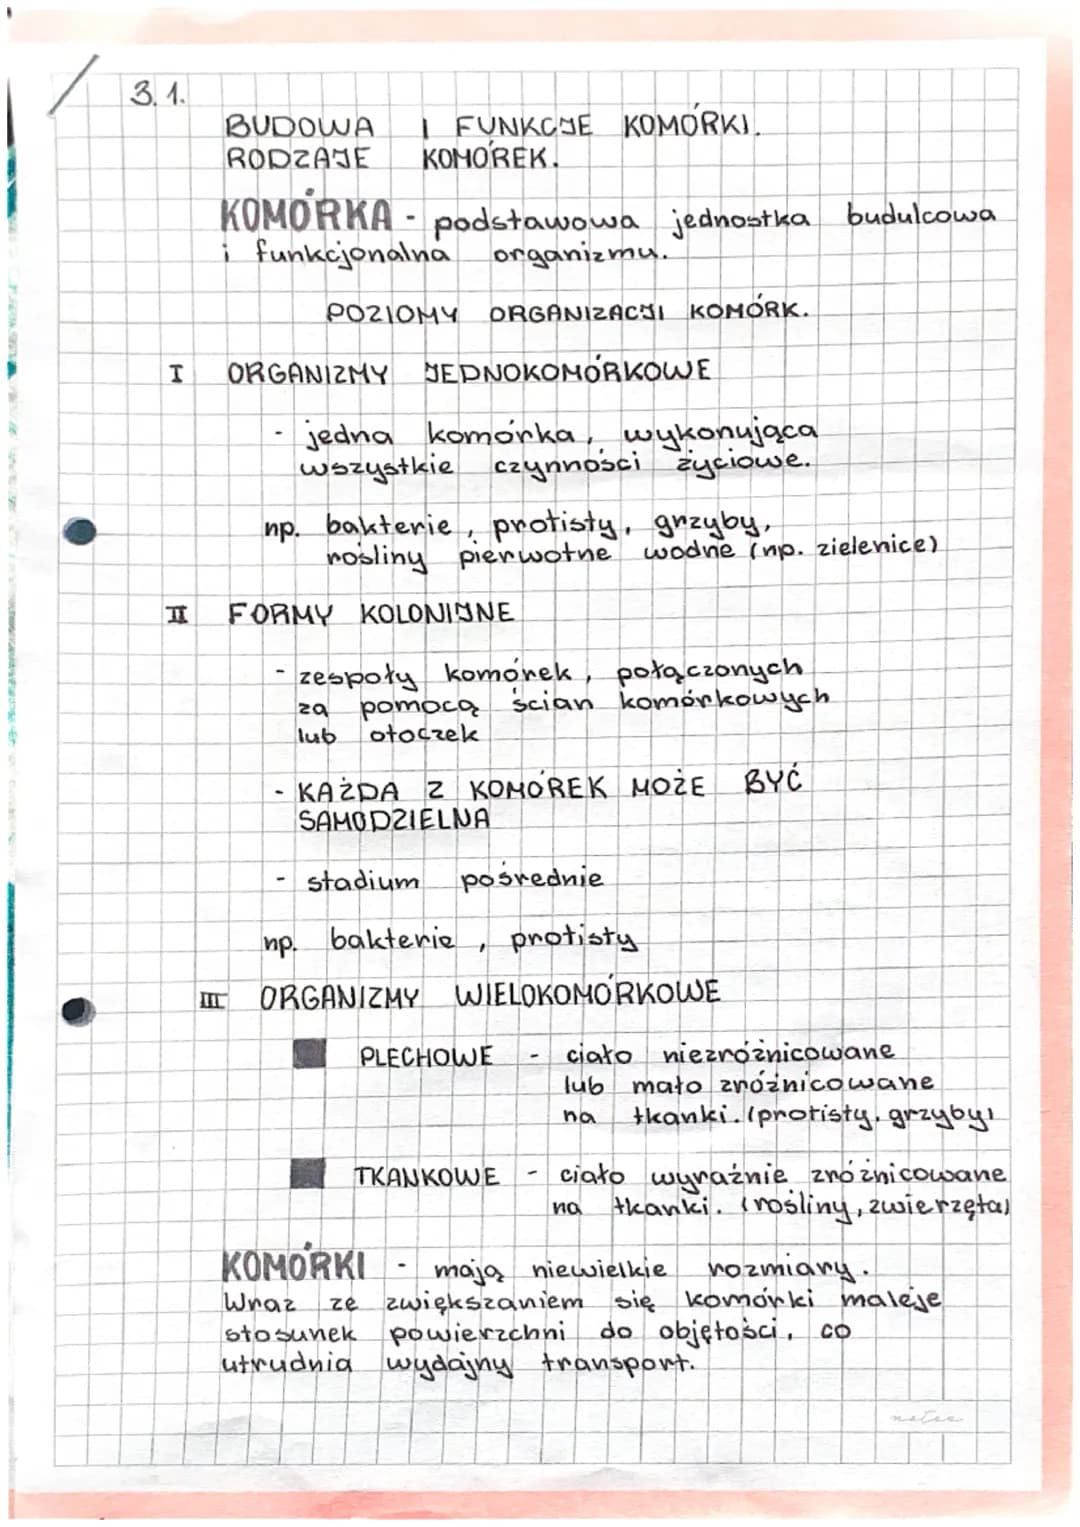 3.1.
BUDOWA I FUNKCJE KOMÓRKI.
RODZAJE KOMÓREK.
KOMÓRKA - podstawowa jednostka budulcowa
i funkcjonalna organizmu.
POZIOMY ORGANIZACJI KOMÓRK.
I ORGANIZMY JEDNOKOMÓRKOWE
- jedna komórka, wykonująca
wszystkie czynności życiowe.
np. bakterie, protisty, grzyby,
rośliny pierwotne wodne (np. zielenice)
II FORMY KOLONIJNE
- zespoły komórek, połączonych
za pomocą ścian komórkowych
lub otoczek
- KAŻDA Z KOMÓREK MOŻE BYĆ
SAMODZIELNA
- stadium pośrednie
np. bakterie, protisty
III ORGANIZMY WIELOKOMÓRKOWE
PLECHOWE - ciało niezróżnicowane
lub mało zróżnicowane
na tkanki. (protisty, grzyby)
TKANKOWE - ciało wyraźnie zróżnicowane
na tkanki. (rośliny, zwierzęta)
KOMÓRKI - mają niewielkie rozmiary.
Wraz ze zwiększaniem się komórki maleje
stosunek powierzchni do objętości, co
utrudnia wydajny transport.